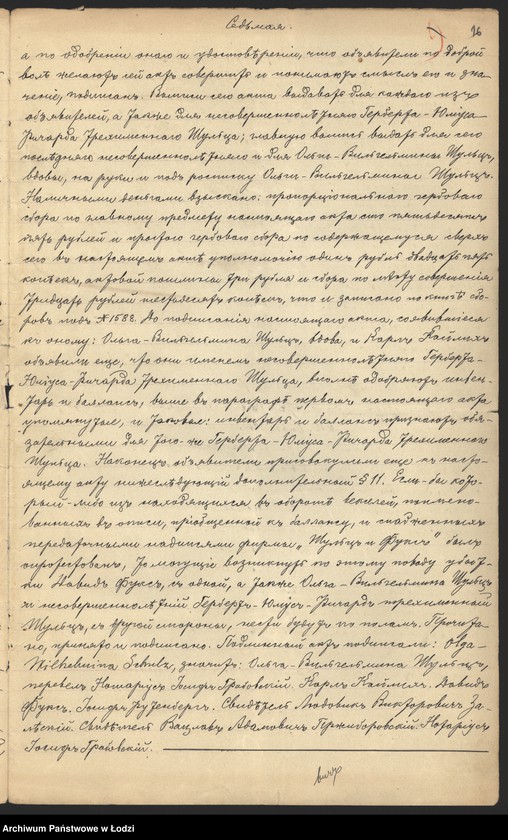 Седьмая.
16
а по одобреніи онаго и удостовѣреніи, что объявители по доброй
волѣ желаютъ сей актъ совершить и понимаютъ смыслъ его и зна-
ченіе, подписанъ. Выписи сего акта выдавать для каждаго изъ
объявителей, а также для несовершеннолѣтняго Герберта-Юліуса-
Ричарда трехименнаго Шульца; главную выпись выдать для сего
послѣдняго несовершеннолѣтняго и для Ольги-Вильгельмины Шульцъ,
вдовы, на руки и подъ росписку Ольги-Вильгельмины Шульцъ.
Наличными деньгами взыскано: пропорціональнаго гербоваго
сбора по главному предмету настоящаго акта сто пятьдесятъ
пять рублей и простого гербоваго сбора по содержащемуся сверхъ
сего въ настоящемъ актѣ уполномочію одинъ рубль двадцать пять
копѣекъ, актовой пошлины три рубля и сбора по мѣсту совершенія
тридцать рублей шестьдесятъ копѣекъ, что и записано по книгѣ сбо-
ровъ подъ № 1588. До подписанія настоящаго акта, явившіеся
къ оному: Ольга-Вильгельмина Шульцъ, вдова, и Карлъ
объявили еще, что они именемъ несовершеннолѣтняго Герберта-
Юліуса-Ричарда трехименнаго Шульца, вполнѣ одобряютъ инвен-
тарь и балансъ, выше въ параграфѣ первомъ настоящаго акта
упомянутые, и таковые: инвентарь и балансъ признаютъ обя-
зательными для того-же Герберта-Юліуса-Ричарда трехименнаго
Шульца. Наконецъ, объявители присовокупили еще къ насто-
ящему акту нижеслѣдующій дополнительный § 11. Если-бы кото-
рый-либо изъ находящихся въ оборотѣ векселей, поимено-
ванныхъ въ описи, пріобщенной къ балансу, и снабженныхъ
передаточными надписями фирмы „Шульцъ и Фуксъ" былъ
опротестованъ, то могущіе возникнуть по этому поводу убыт-
ки Давидъ Фуксъ, съ одной, а также Ольга-Вильгельмина Шульцъ
и несовершеннолѣтній Гербертъ-Юліусъ-Ричардъ трехименный
Шульцъ, съ другой стороны, нести будутъ по поламъ. Прочита-
но, принято и подписано. Подлинный актъ подписали: Olga-
Wilhelmina Schulz, значитъ: Ольга-Вильгельмина Шульцъ,
перевелъ Нотаріусъ Іосифъ Грабовскій. Карлъ. Давидъ
Фуксъ. Іосифъ Рузенбергъ. Свидѣтель Людовикъ Викторовичъ За-
лѣскій. Свидѣтель Вацлавъ Адамовичъ. Нотаріусъ
Іосифъ Грабовскій.
Archiwum Państwowe w Łodzi